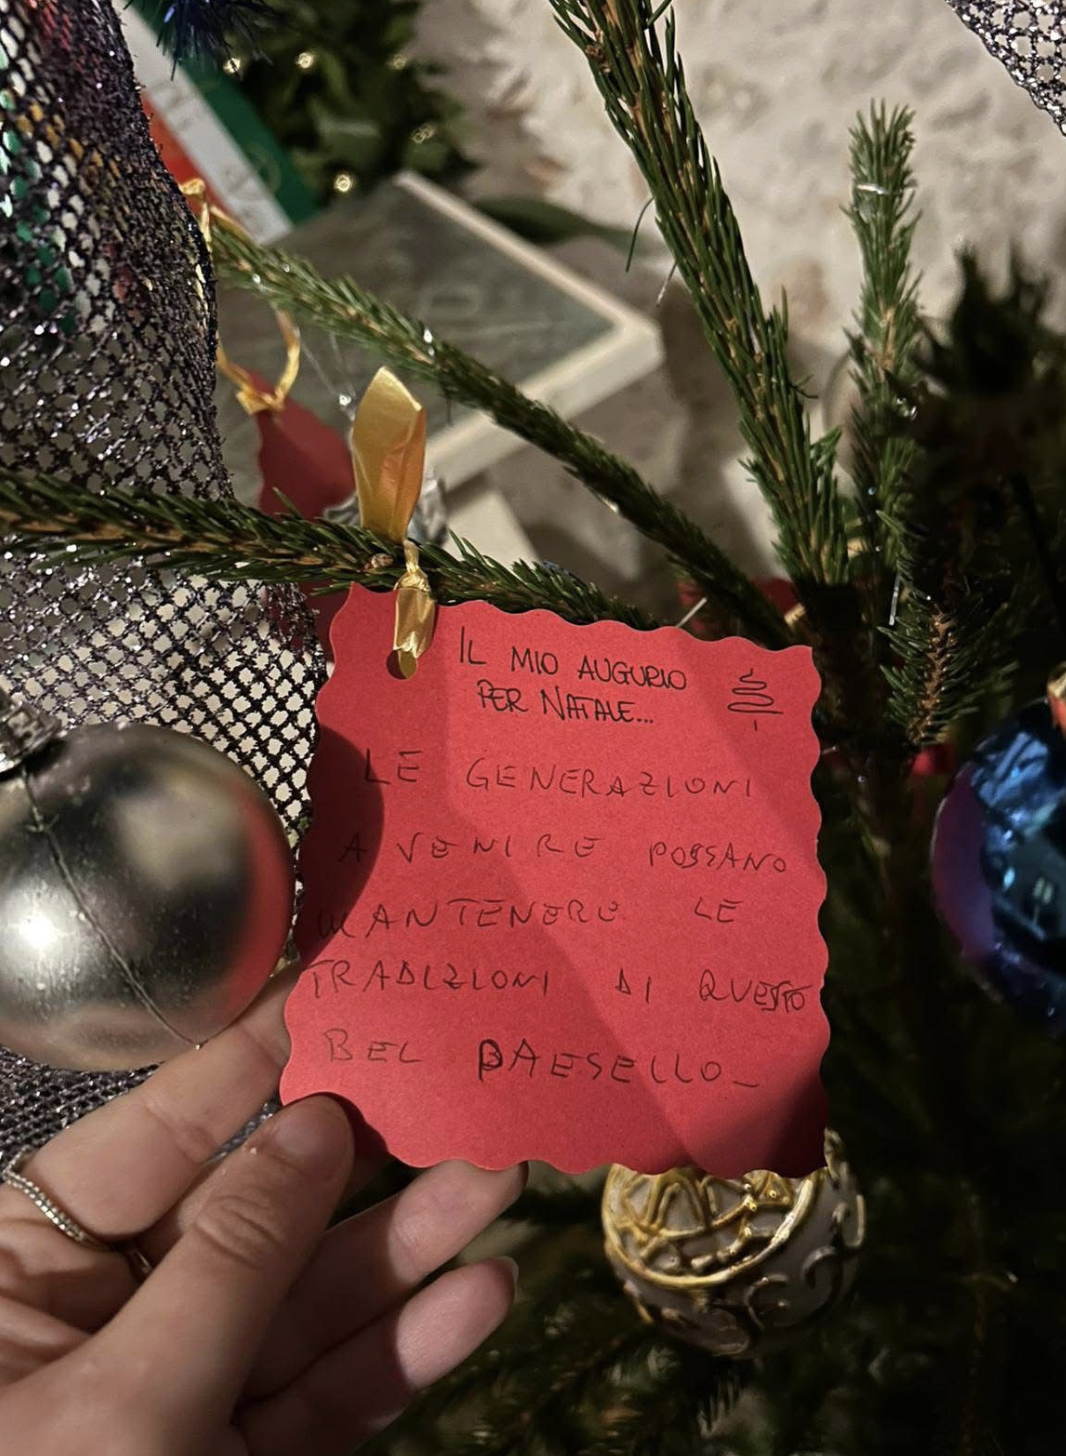 IL MIO AUGURIO
PER NATALE...
LE GENERAZIONI
A VENIRE POSSANO
MANTENERE LE
TRADIZIONI DI QUESTO
BEL PAESELLO_